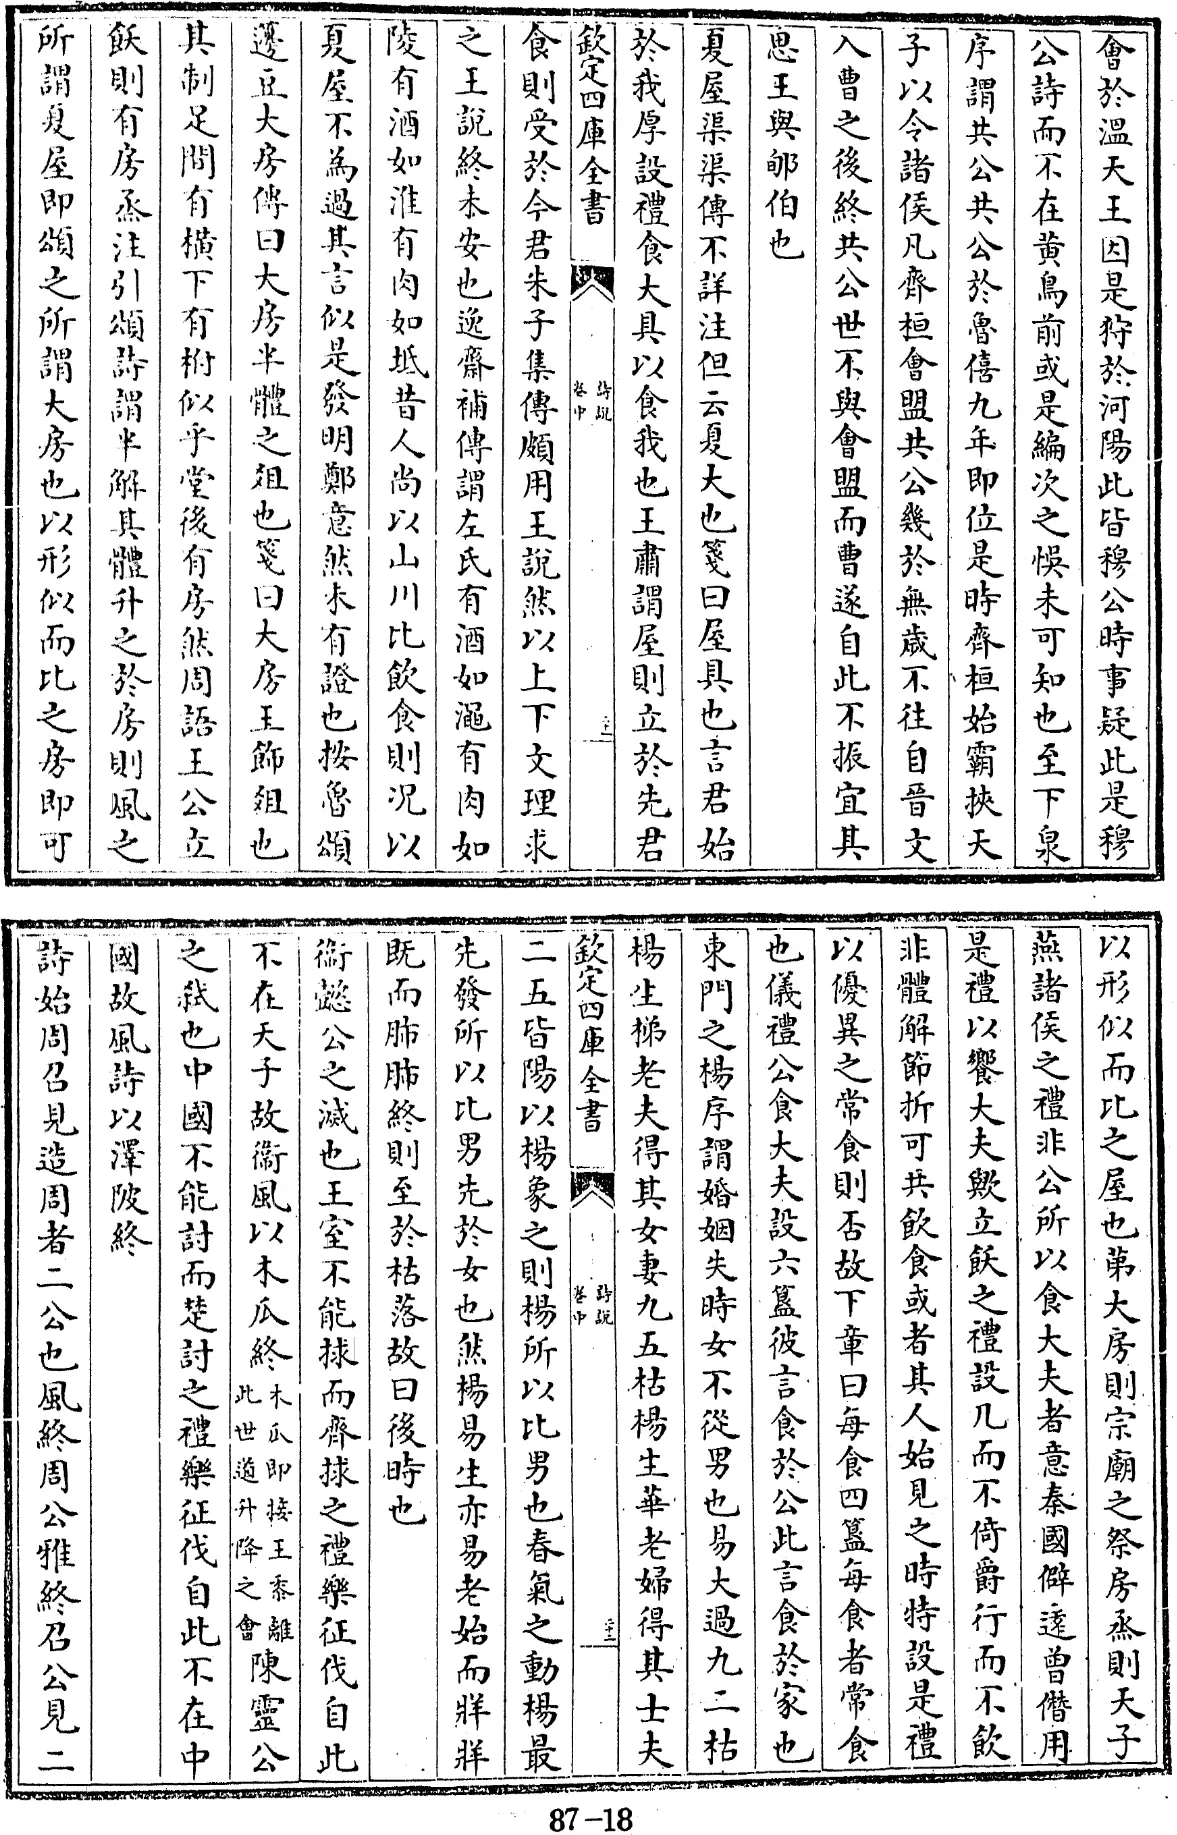 會於溫天王因是狩於河陽此皆穆公時事疑此是穆
公詩而不在黃鳥前或是編次之悞未可知也至下泉
序謂共公共公於魯僖九年即位是時齊桓始霸挾天
子以令諸侯凡齊桓會盟共公幾於無歲不往自晉文
入曹之後終共公世不與會盟而曹遂自此不振宜其
思王與郇伯也
夏屋渠渠傳不詳注但云夏大也箋曰屋具也言君始
於我厚設禮食大具以食我也王肅謂屋則立於先君
欽定四庫全書
詩說
卷中
二十二
食則受於今君朱子集傳頗用王說然以上下文理求
之王說終未安也逸齋補傳謂左氏有酒如澠有肉如
陵有酒如淮有肉如坻昔人尚以山川比飲食則況以
夏屋不為過其言似是發明鄭意然未有證也按魯頌
籩豆大房傳曰大房半體之俎也箋曰大房玉飾俎也
其制足間有橫下有柎似乎堂後有房然周語王公立
飫則有房烝注引頌詩謂半解其體升之於房則風之
所謂夏屋即頌之所謂大房也以形似而比之房即可
以形似而比之屋也第大房則宗廟之祭房烝則天子
燕諸侯之禮非公所以食大夫者意秦國僻遠曾僭用
是禮以饗大夫歟立飫之禮設几而不倚爵行而不飲
非體解節折可共飲食或者其人始見之時特設是禮
以優異之常食則否故下章曰每食四簋每食者常食
也儀禮公食大夫設六簋彼言食於公此言食於家也
東門之楊序謂婚姻失時女不從男也易大過九二枯
楊生稊老夫得其女妻九五枯楊生華老婦得其士夫
欽定四庫全書
詩說
卷中
二十三
二五皆陽以楊象之則楊所以比男也春氣之動楊最
先發所以比男先於女也然楊易生亦易老始而牂牂
既而肺肺終則至於枯落故曰後時也
衞懿公之滅也王室不能捄而齊捄之禮樂征伐自此
不在天子故衞風以木瓜終木瓜即接王黍離此世道升降之會陳靈公
之弒也中國不能討而楚討之禮樂征伐自此不在中
國故風詩以澤陂終
詩始周召見造周者二公也風終周公雅終召公見二
87-18